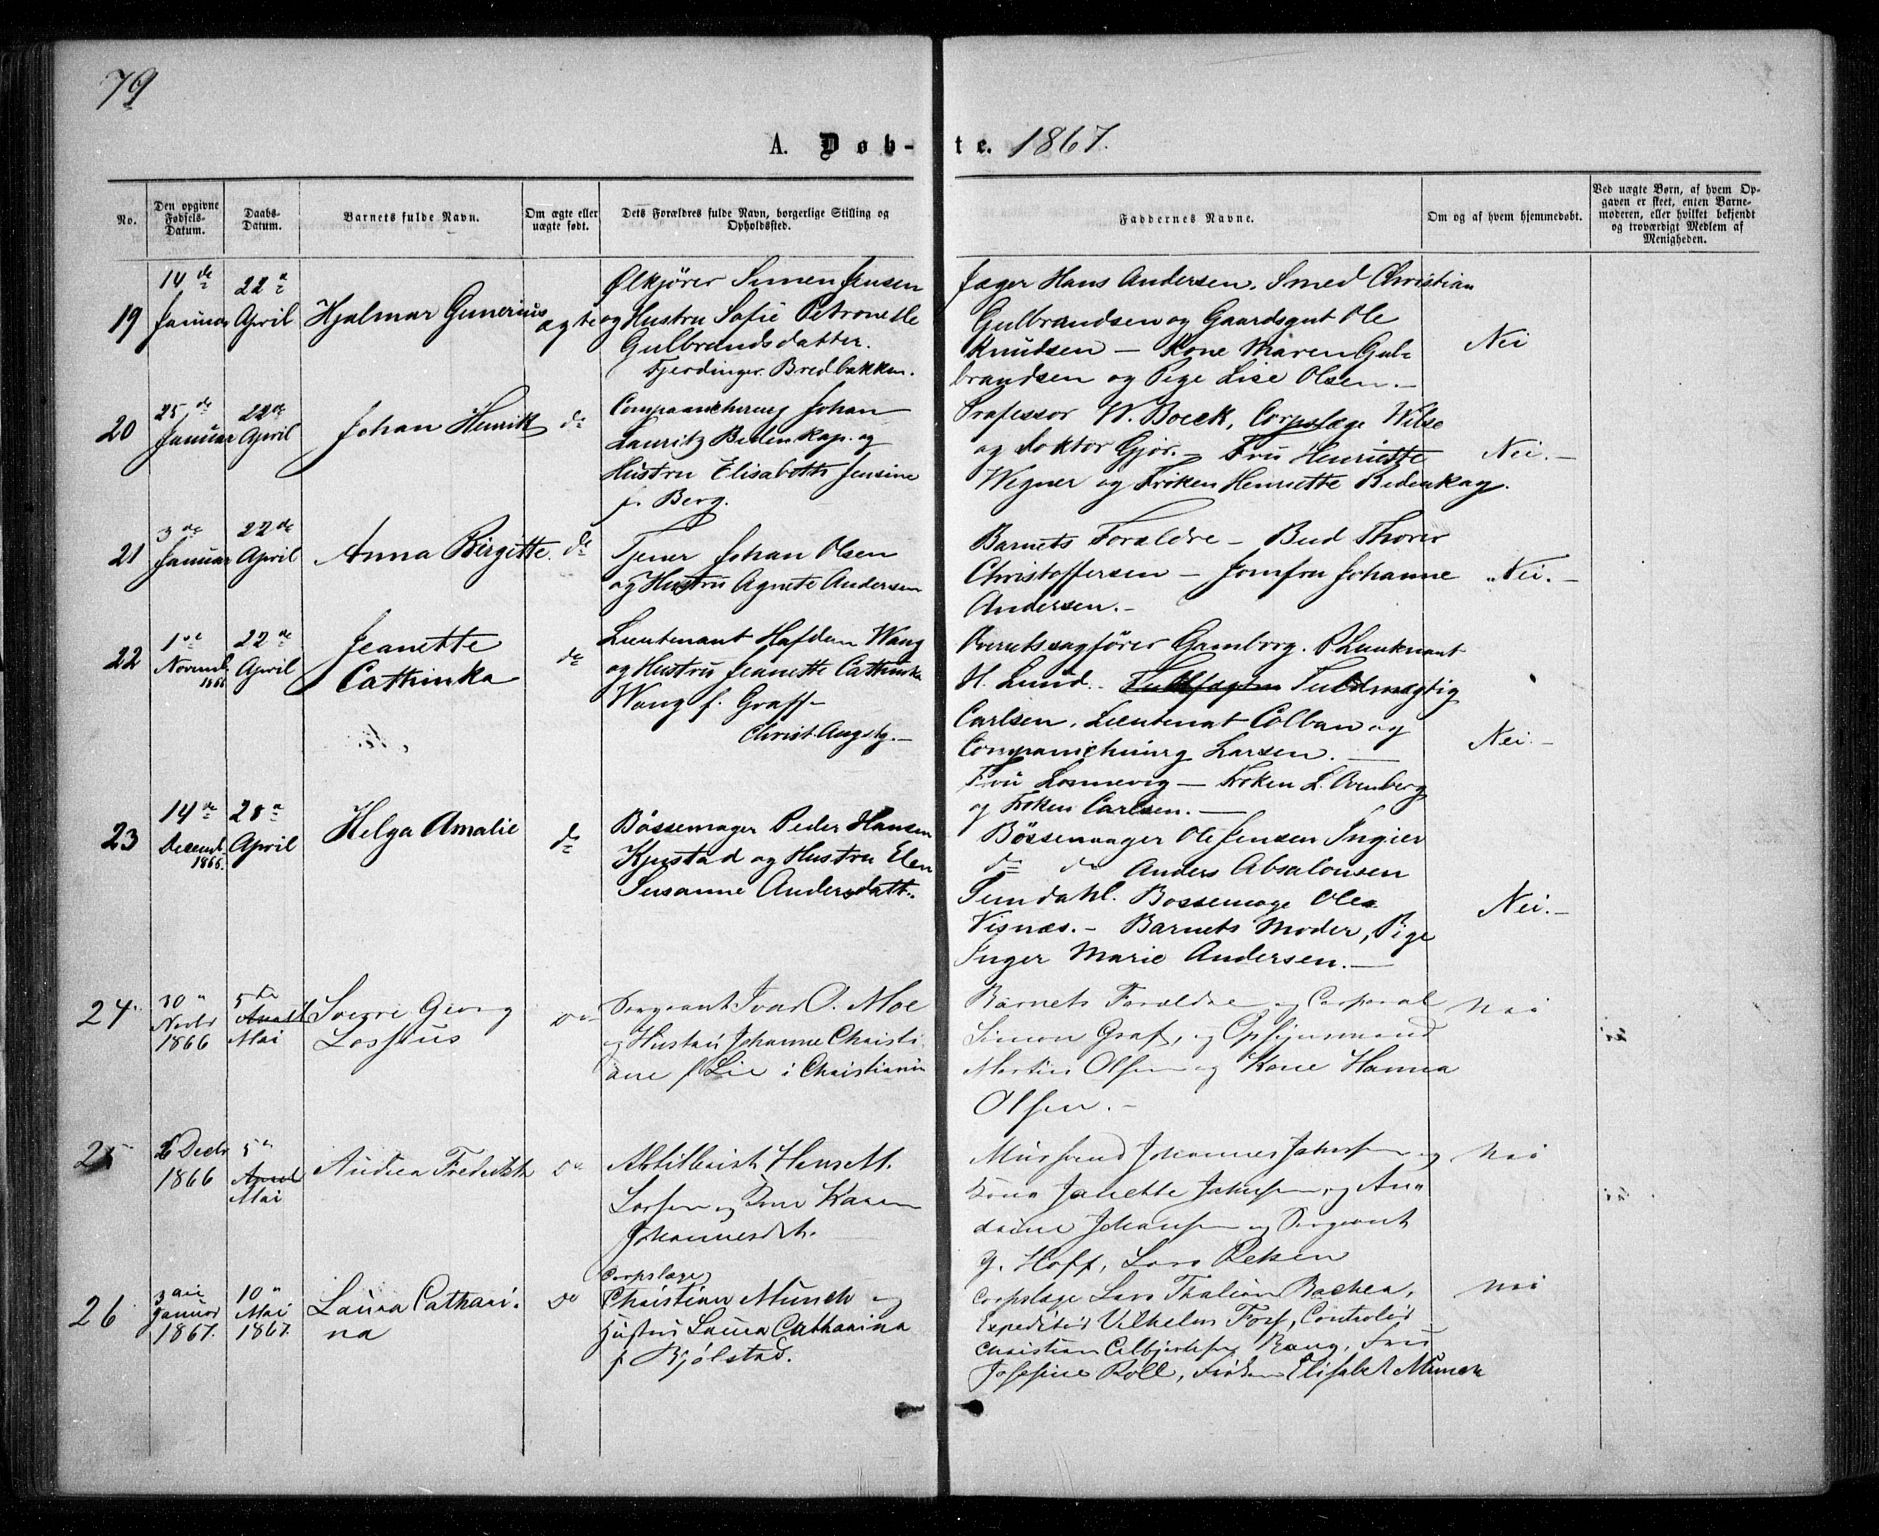 79
A. Døb-te. 1867.
No.
Den opgivne Fødsels-Datum.
Daabs-Datum.
Barnets fulde Navn.
Om ægte eller uægte født.
Dets Forældres fulde Navn, borgerlige Stilling og Opholdssted.
Faddernes Navne.
Om og af hvem hjemmedøbt.
Ved uægte Børn, af hvem Op-
gaven er skeet, enten Barne-
moderen, eller hvilket bekjendt
og troværdigt Medlem af
Menigheden.
19
14de Januar
22de April
Hjalmar Gunerius
ægte
Ølkjører Simen Jensen
og Hustru Sofie Petronelle
Gulbrandsdatter.
Fjerdinger. Bredbakken.
Jæger Hans Andersen, Smed Christian
Gulbrandsen og Gaardsgut Ole
Knudsen — Kone Maren Gul-
brandsen og Pige Lise Olsen. —
Nei
20
25de Januar
22de April
Johan Henrik
do
Compagnichirurg Johan
Lauritz Bidenkap. og
Hustru Elisabeth Jensine
f. Berg.
Professor W. Boeck, Corpslæge Wilse
og Doktor Gjør. — Fru Henriette
Wegner og Frøken Henriette Bidenkap.
Nei. —
21
3de Januar
22de April
Anna Birgitte.
do
Tjener Johan Olsen
og Hustru Agnete Andersen
Barnets Forældre — Bud Thorer
Christoffersen — Jomfru Johanne
Andersen. —
Nei. —
22
1ste Novemb. 1866
22de April
Jeanette
Cathinka
do
Lieutenant Hafdan Wang
og Hustru Jeanette Cathinka
Wang f. Graff —
Christ. Augstg. —
Overretssagfører Gamborg. P Lieutenant
H. Lund. Fuldmægtig
Carlsen. Lieutenat Colban og
Companichirurg Larsen. —
Fru Lonnevig — Frøken L. Ovenberg
og Frøken Carlsen. —
Nei. —
23
14de Decemb. 1866.
28de April
Helga Amalie
do
Bøssemager Peder Hansen
Kjustad og Hustru Elen
Susanne Andersdatt.
Bøssemager Ole Jensen Ingier
do do Anders Absalonsen
Sundahl. Bossemage Ole
Visnæs. — Barnets Moder, Pige
Inger Marie Andersen. —
Nei. —
24
30 Novbr 1866
5de April Mai
Sverre Georg
Lossius
Do
Sergeant Ivar O. Moe
og Hustru Johanne Christi
ane f Lie i Christiania
Barnets Forældre og Corporal
Simon Graf, og Opsynsmand
Martin Olsen og Kone Hanna
Olsen. —
Nei
25
Decbr 1866
5 April Mai
Andrea Fredrikke
Do
Artillerist Hans M.
Larsen og Kone Karen
Johannesdt.
Johannes Johnsen og
Kone Janette Johnsen, og An
Johansen og Sergeant
J. Hoff, Lars Olsen
Nei
26
3die Januar 1867.
10 Mai 1867.
Laura Cathari-
na
Do
Corpslæge
Christian Munch og
Hustru Laura Catharina
f. Bjølstad.
Corpslæge Lars Bachea,
Expeditør Vilhelm Foss, Controlør
Christian Rang, Fru
Josefine Roll, Frøken Elisabet Munch
Nei